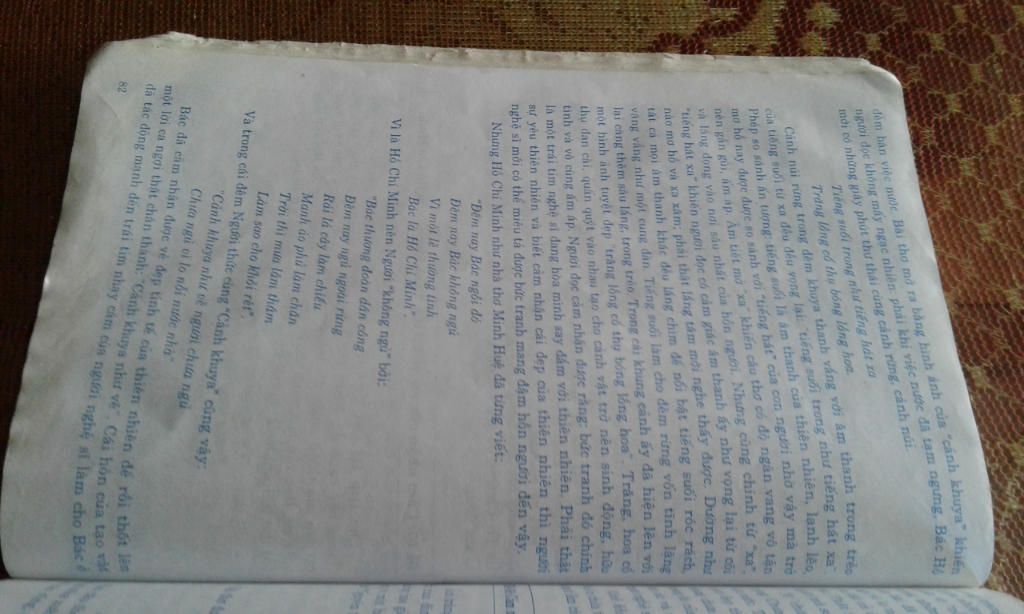 đàm bàn việc nước. Bài thơ mở ra bằng hình ảnh của "cảnh khuya" khiến
người đọc không mấy ngạc nhiên: phải khi việc nước đã tạm ngưng, Bác Hồ
mới có những giây phút thư thái cùng cảnh rừng, cảnh núi:
Tiếng suối trong như tiếng hát xa
Trăng lồng cổ thụ bóng lồng hoa.
Cảnh núi rừng trong đêm khuya thanh vắng với âm thanh trong trẻo
của tiếng suối từ xa đều đều vọng lại: "tiếng suối trong như tiếng hát xa".
Phép so sánh ấn tượng: tiếng suối là âm thanh của thiên nhiên, lạnh lẽo,
mơ hồ nay được so sánh với "tiếng hát" của con người nhờ vậy mà trở
nên gần gũi, ấm áp. Âm tiết mở "xa" khiến câu thơ có độ ngân vang vô tận
và lắng đọng vào nơi sâu nhất của hồn người. Nhưng cũng chính từ "xa",
"tiếng hát xa" khiến người đọc có cảm giác âm thanh ấy như vọng lại từ cõi
nào mơ hồ và xa xăm; phải thật lắng tâm mới nghe thấy được. Dường như
tất cả mọi âm thanh khác đều lắng chìm để nổi bật tiếng suối róc rách,
văng vẳng như một cung đàn. Tiếng suối làm cho đêm rừng vốn tĩnh lặng
lại càng thêm sâu lắng, trong trẻo. Trong cái khung cảnh ấy đã hiện lên với
một hình ảnh tuyệt đẹp "trăng lồng cổ thụ bóng lồng hoa". Trăng, hoa, cổ
thụ đan chi, quấn quýt vào nhau tạo cho cảnh vật trở nên sinh động, hữu
tình và vô cùng ấm áp. Người đọc cảm nhận được rằng: bức tranh đó chính
là một trái tim nghệ sĩ đang hòa mình say đắm với thiên nhiên. Phải thật
sự yêu thiên nhiên và biết cảm nhận cái đẹp của thiên nhiên thì người
nghệ sĩ mới có thể miêu tả được bức tranh mang đậm hồn người đến vậy.
Nhưng Hồ Chí Minh như nhà thơ Minh Huệ đã từng viết:
"Đêm nay Bác ngồi đó
Đêm nay Bác không ngủ
Vì một lẽ thường tình
Bác là Hồ Chí Minh".
Vì là Hồ Chí Minh nên Người "không ngủ" bởi:
"Bác thương đoàn dân công
Đêm nay ngủ ngoài rừng
Rải lá cây làm chiếu
Manh áo phủ làm chăn
Trời thì mưa lâm thâm
Làm sao cho khỏi rét".
Và trong cái đêm Người thức cùng "Cảnh khuya" cũng vậy:
"Cảnh khuya như vẽ người chưa ngủ
Chưa ngủ vì lo nỗi nước nhà"
Bác đã cảm nhận được vẻ đẹp tinh tế của thiên nhiên để rồi thốt lên
một lời ca ngợi thật chân thành: "Cảnh khuya như vẽ". Cái hồn của tạo vật
đã tác động mạnh đến trái tim nhạy cảm của người nghệ sĩ làm cho Bác
82